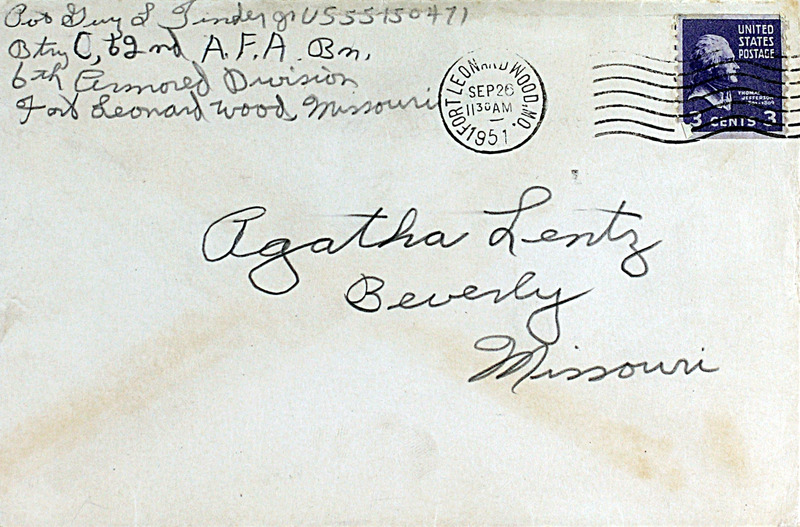 Pvt Guy L Tinder Jr US55150471
Btry C, 62nd A.F.A. Bn.
6th Armored Division
Fort Leonard Wood, Missouri
FORT LEONARD WOOD, MO.
SEP 26
1130 AM
1951
UNITED
STATES
POSTAGE
THOMAS
JEFFERSON
3 CENTS 3
Agatha Lentz
Beverly
Missouri